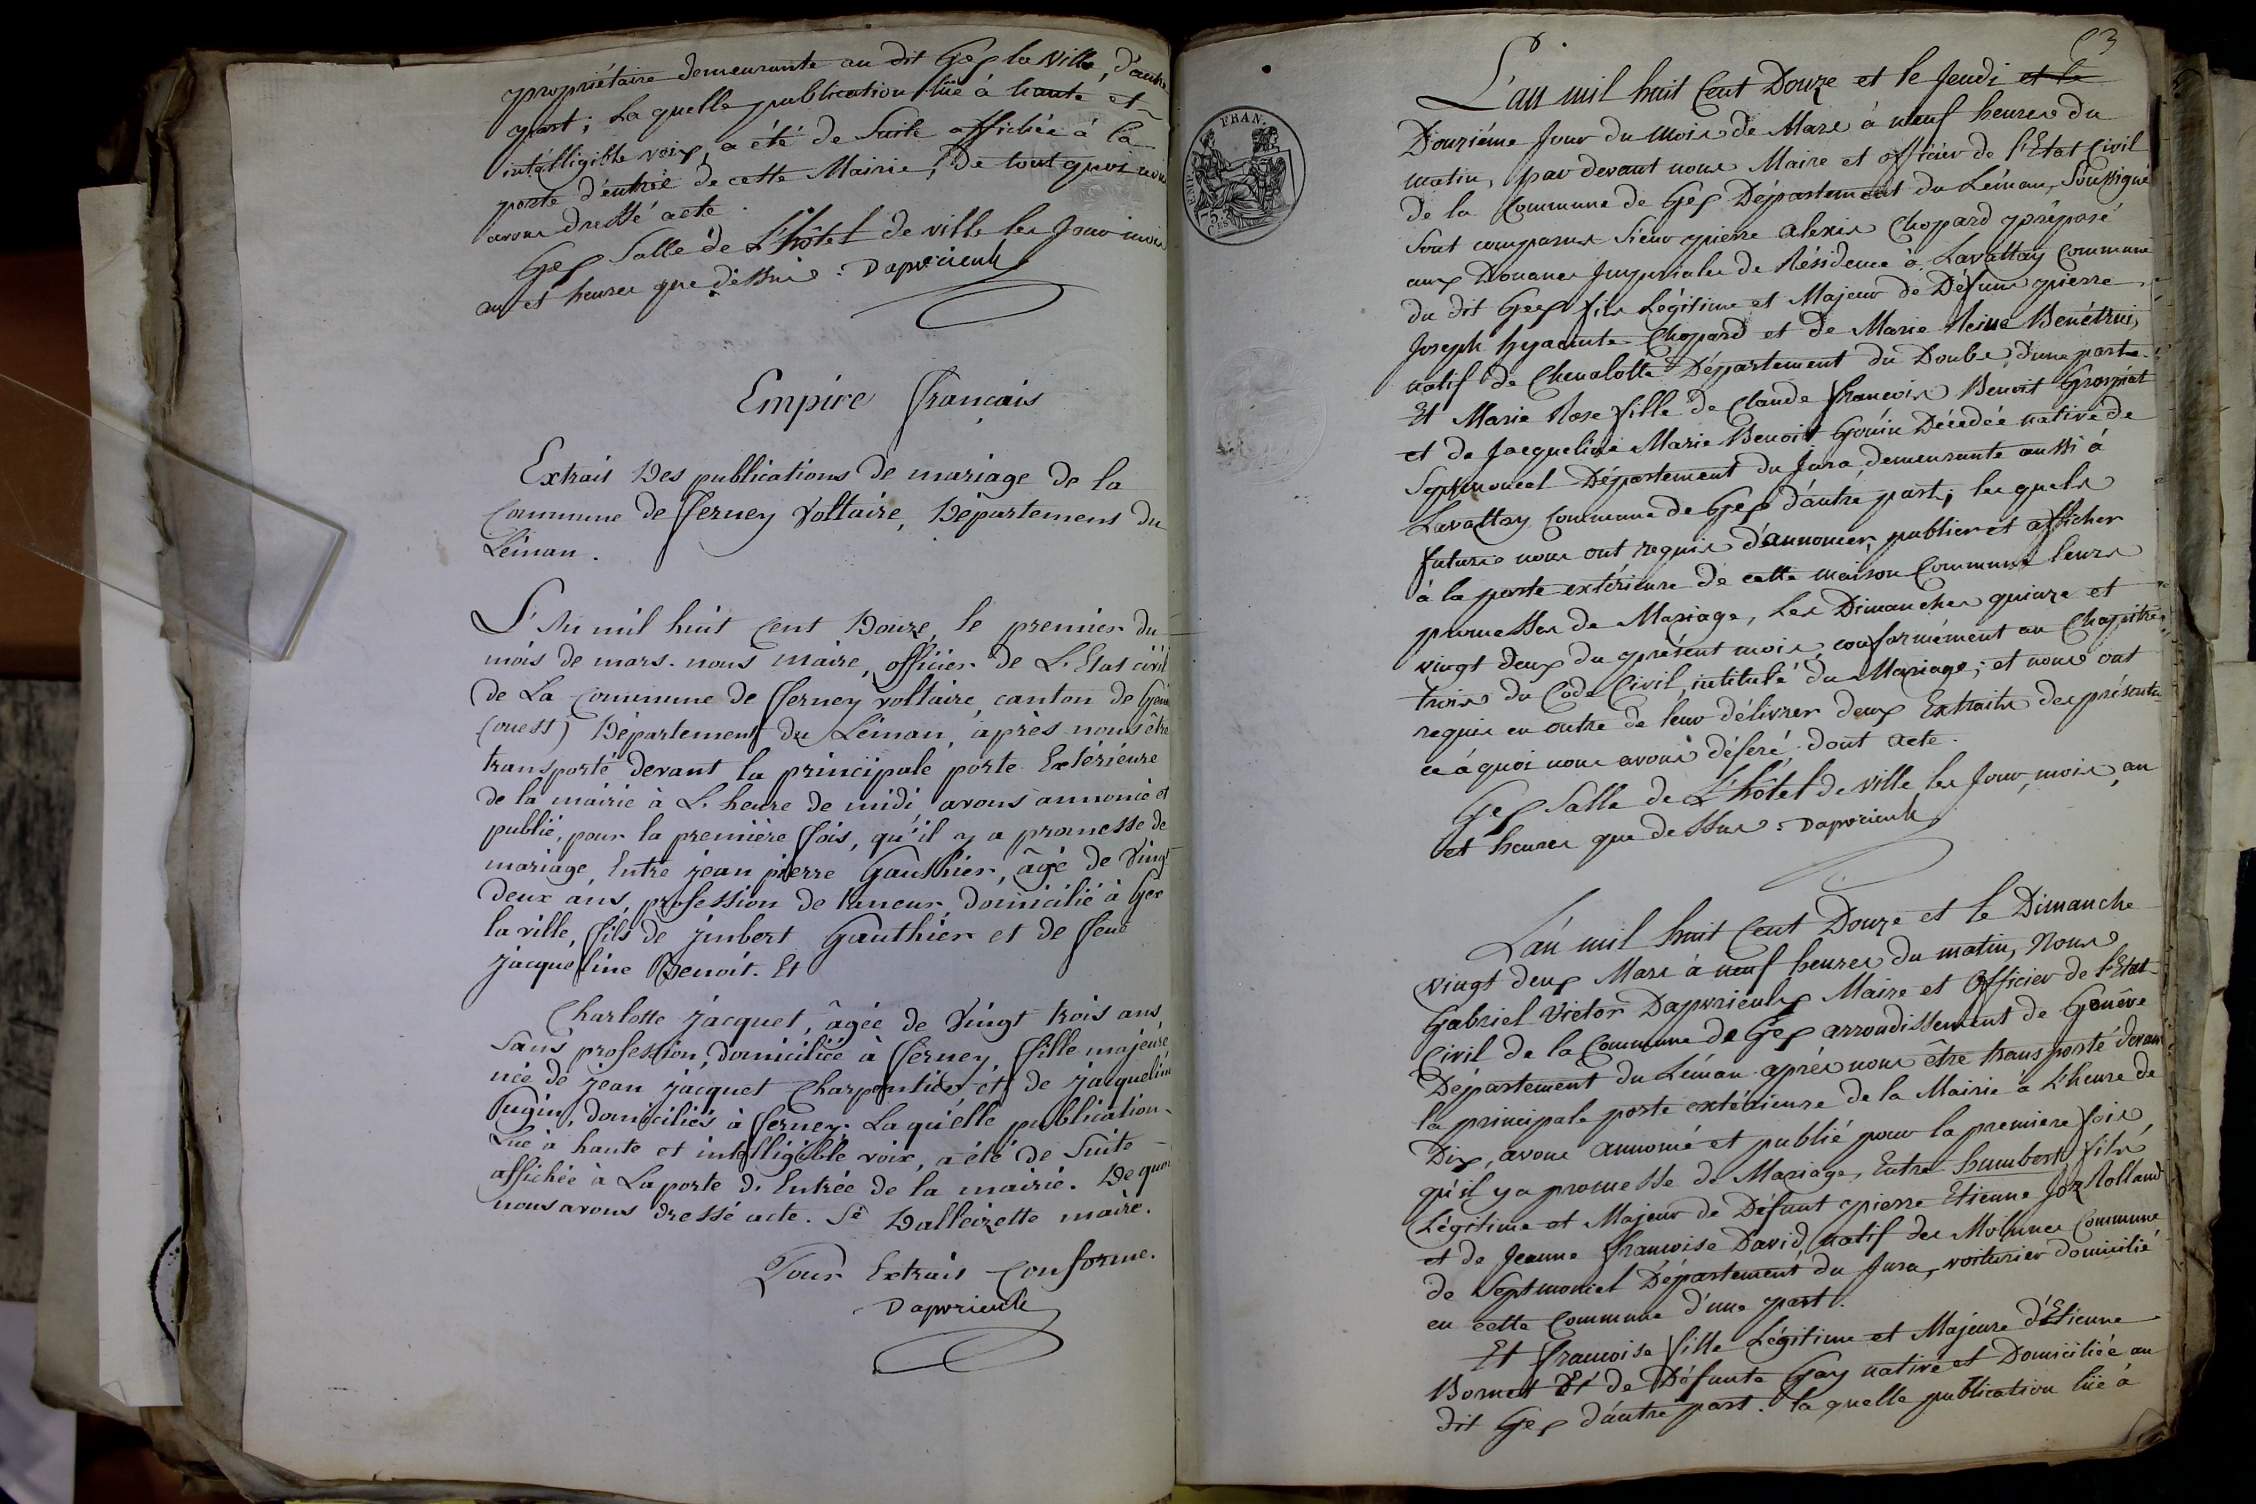 propriétaire demeurante au dit Gex la Ville, d'autre
part; La quelle publication lue à haute et
intélligible voix, a été de Suite affichée à la
porte d'entrée de cette Mairie, De tout quoi nous
avons dressé acte.
Gex Salle de L'hôtel de ville les Jour mois
an et heures que dessus : Daprieulx
Empire français
Extrait Des publications de mariage de la
Commune de Ferney Voltaire, Département du
Léman.
L'An mil huit Cent Douze, le premier du
mois de mars. nous maire, officier de L'Etat civil
de La Commune de Ferney voltaire, canton de Gex
(ouest) Département du Léman, après nous être
transporté devant la principale porte Extérieure
de la mairie à L'heure de midi avons annoncé et
publié, pour la première fois, qu'il y a promesse de
mariage, Entre jean pierre Gauthier, âgé de Vingt
Deux ans, profession de taneur domicilié à Gex
la ville, fils de jinbert Gauthier et de feue
jacqueline Benoit. Et
Charlotte jacquet, âgée de Vingt trois ans
Sans profession, domiciliée à Ferney, fille majeure
née de jean jacquet Charpentier et de jacqueline
Pugin, domiciliés à ferney. La quelle publication
Lue à haute et intelligible voix, a été de Suite
affichée à La porte d'Entrée de la mairie. De quoi
nous avons dressé acte. Sé Dalleizette maire.
Pour Extrait Conforme.
Daprieulx
FRAN.
EMP.
75
CES
L'an mil huit Cent Douze et le Jeudi et le
Douzième Jour du mois de Mars à neuf heures du
matin, par devant nous Maire et officier de l'Etat Civil
de la Commune de Gex Département du Léman, Soussigné
Sont comparus Sieur pierre Alexis Chopard préposé
aux Douanes Impériales de Résidence à Lavattay Commune
du dit Gex fils Légitime et Majeur de Défunt pierre
Joseph hyacinte Chopard et de Marie Reine Benétrui,
natif de Chenalotte Département du Doubs d'une part.
Et Marie Rose fille de Claude francois Benoit Grospiat
et de Jacqueline Marie Benoit Gouin Décédée native de
Septmoncel Département du Jura, demeurante aussi à
Lavattay Commune de Gex d'autre part; les quels
futurs nous ont requis d'annoncer, publier et afficher
à la porte extérieure de cette maison Commune leurs
promesses de Mariage, Les Dimanches quinze et
vingt deux du présent mois, conformément au Chapitre
trois du Code Civil, intitulé du Mariage; et nous ont
requis en outre de leur délivrer deux Extraits des présentes
ce à quoi nous avons déféré. dont acte.
Gex Salle de L'hôtel de ville les Jour, mois, an
et heures que dessus : Daprieulx
L'an mil huit Cent Douze et le Dimanche
vingt deux Mars à neuf heures du matin, Nous
Gabriel Victor Daprieulx Maire et Officier de l'Etat
Civil de la Commune de Gex arrondissement de Genêve
Département du Léman après nous être transporté devant
la principale porte extérieure de la Mairie à L'heure de
Dix, avons annoncé et publié pour la premiere fois
qu'il y a promesse de Mariage, Entre humbert fils
Légitime et Majeur de Défunt pierre Etienne Joz Rolland
et de Jeanne francoise David, natif des Molunes Commune
de Septmoncel Département du Jura, voiturier domicilié
en cette Commune d'une part.
Et francoise fille Légitime et Majeure d'Etienne
Bornet Et de Défunte Gay native et Domiciliée au
dit Gex d'autre part. la quelle publication lue à